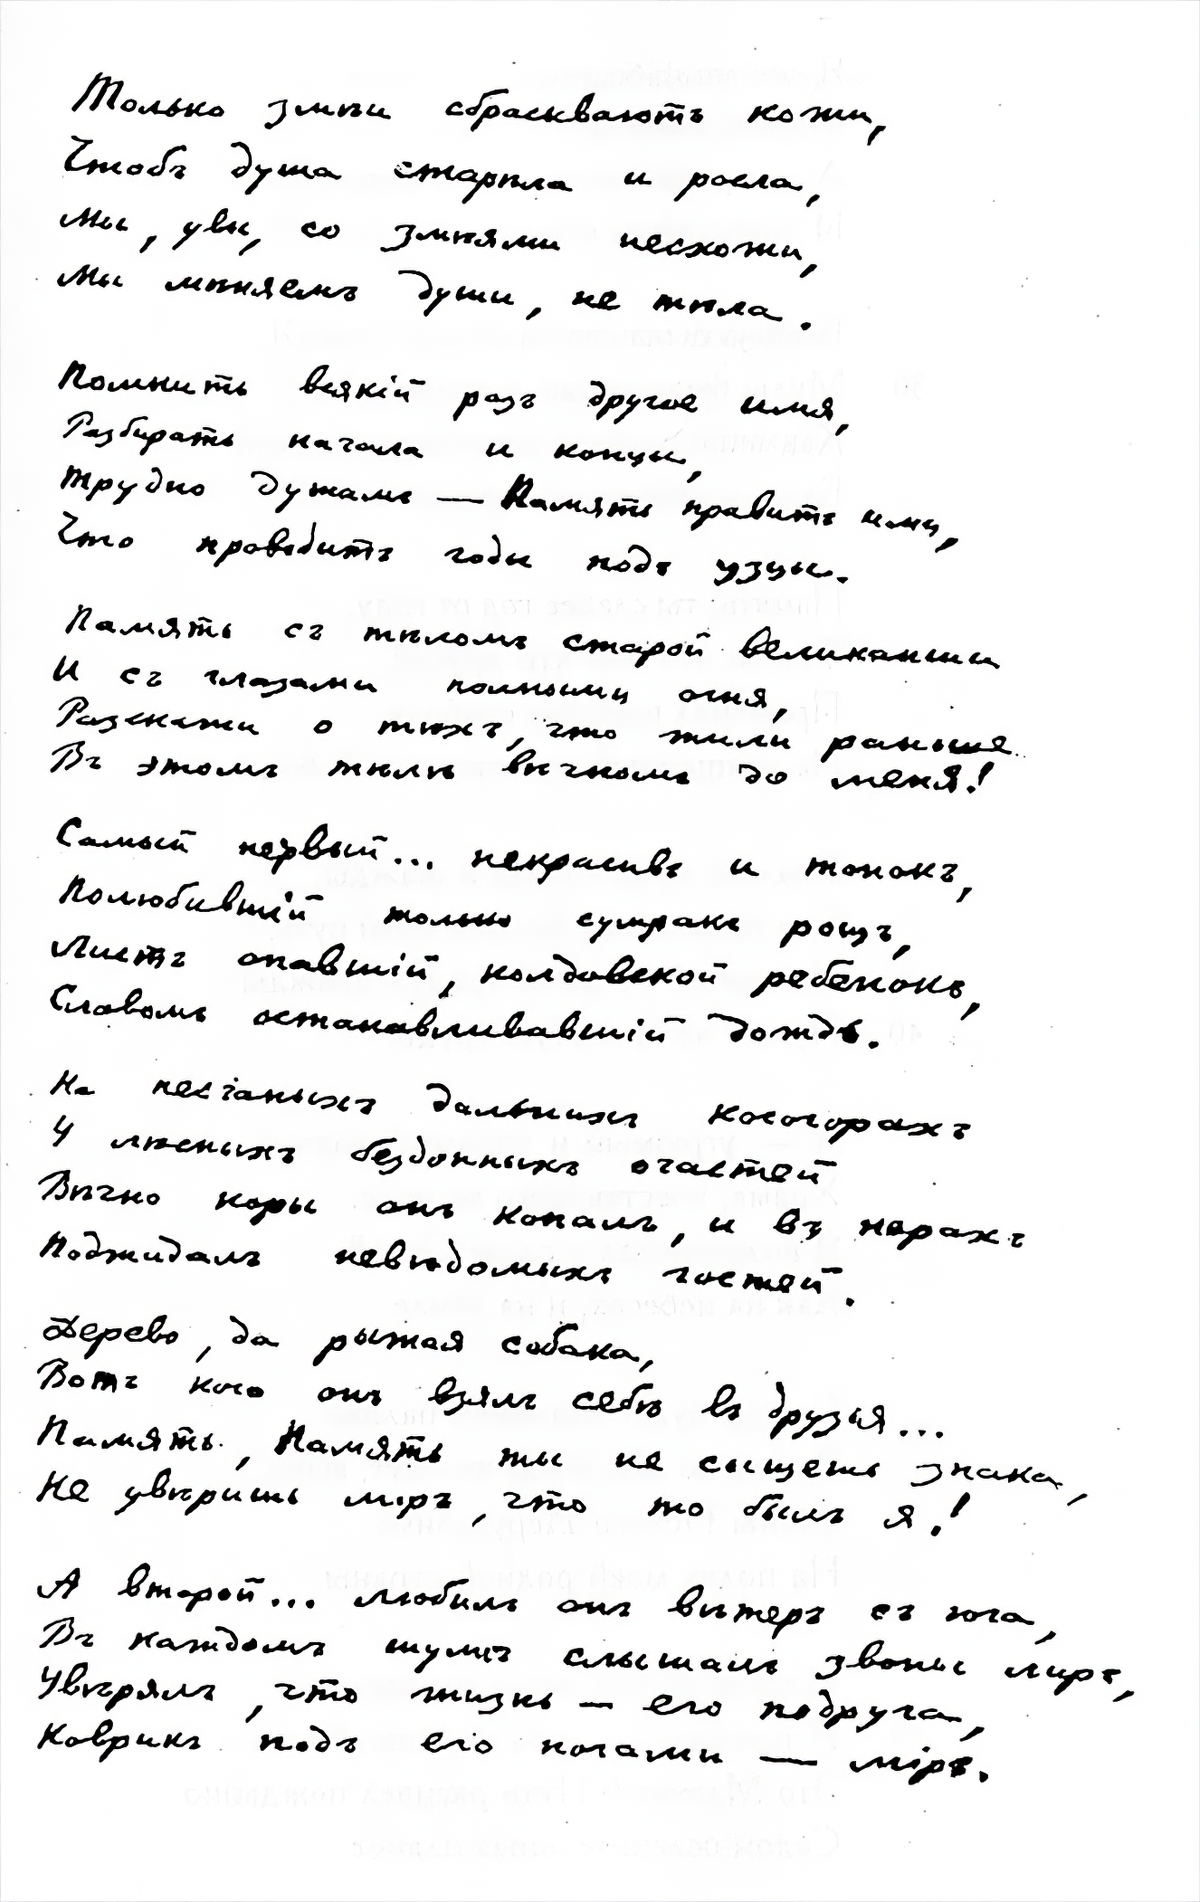 Только змѣи сбрасываютъ кожи,
Чтобъ душа старѣла и росла,
Мы, увы, со змѣями несхожи,
Мы мѣняемъ души, не тѣла.
Помнить всякій разъ другое имя,
Разбирать начала и концы,
Трудно душамъ — Память правитъ ими,
Что проводитъ годы подъ уздцы.
Память съ тѣломъ старой великанши
И съ глазами полными огня,
Разскажи о тѣхъ, что жили раньше
Въ этомъ тѣлѣ вѣчномъ до меня!
Самый первый... некрасивъ и тонокъ,
Полюбившій только сумракъ рощъ,
Листъ опавшій, колдовской ребёнокъ,
Словомъ останавливавшій дождь.
На песчаныхъ дальнихъ косогорахъ
У лѣсныхъ бездонныхъ очастей
Вѣчно норы онъ копалъ, и въ норахъ
Поджидалъ невѣдомыхъ гостей.
Дерево, да рыжая собака,
Вотъ кого онъ взялъ себѣ въ друзья...
Память, Память ты не сыщешь знака,
Не увѣришь міръ, что то былъ я!
А второй... любилъ онъ вѣтеръ съ юга,
Въ каждомъ шумѣ слышалъ звоны лиръ,
Увѣрялъ, что жизнь — его подруга,
Коврикъ подъ его ногами — міръ.